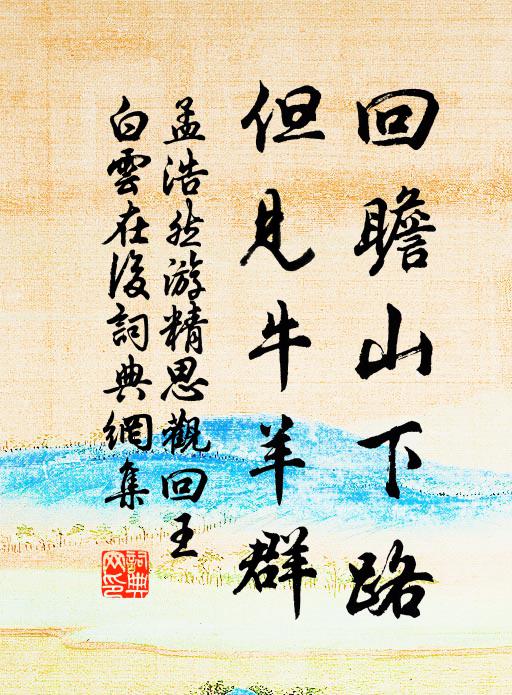 回瞻山下路
但見牛羊群
孟浩然游精思觀回王
白雲在後詞典網集
詞典
网印